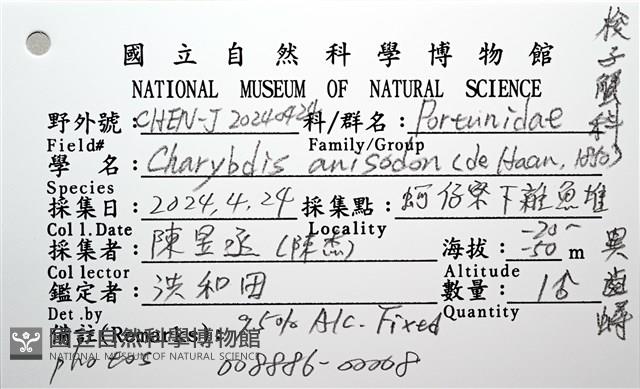 國立自然科學博物館
NATIONAL MUSEUM OF NATURAL SCIENCE
野外號: CHEN-J 20240424 科/群名: Portunidae
Field# Family/Group
學 名: Charybdis anisodon (de Haan, 1850)
Species
採集日: 2024.4.24 採集點: 蚵仔寮下雜魚堆
Coll.Date Locality
採集者: 陳昱丞(陳杰) 海拔: -20~-50 m
Collector Altitude
鑑定者: 洪和田 數量: 1♂
Det.by Quantity
備註(Remarks): 95% Alc. Fixed
photos 008886-00008
梭子蟹科
異齒蟳
國立自然科學博物館
NATIONAL MUSEUM OF NATURAL SCIENCE